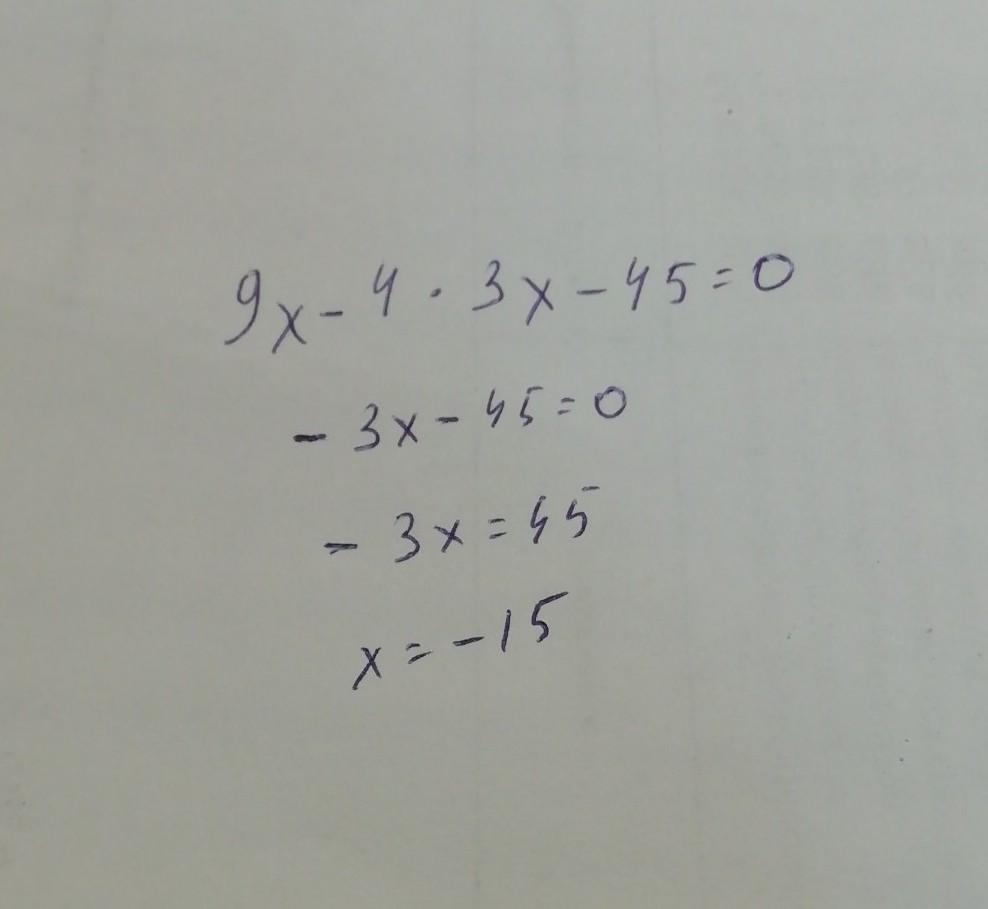 9x - 4 · 3x - 45 = 0
- 3x - 45 = 0
- 3x = 45
x = - 15